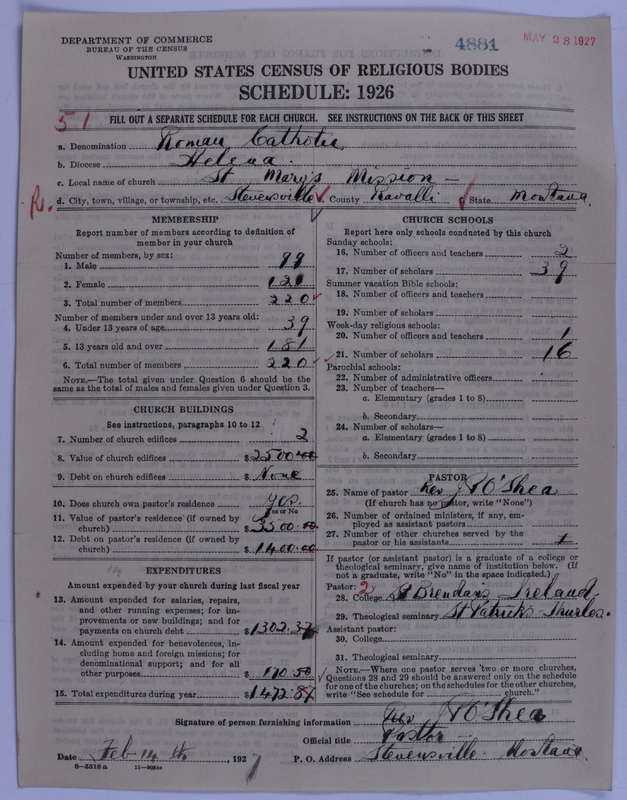 DEPARTMENT OF COMMERCE
BUREAU OF THE CENSUS
WASHINGTON
4881
MAY 28 1927
UNITED STATES CENSUS OF RELIGIOUS BODIES
SCHEDULE: 1926
51
FILL OUT A SEPARATE SCHEDULE FOR EACH CHURCH. SEE INSTRUCTIONS ON THE BACK OF THIS SHEET
a. Denomination Roman Catholic
b. Diocese Helena.
c. Local name of church St Mary's Mission
R. d. City, town, village, or township, etc. Stevensville County Ravalli State Montana.
MEMBERSHIP
Report number of members according to definition of
member in your church
Number of members, by sex:
1. Male 99
2. Female 121
3. Total number of members 220
Number of members under and over 13 years old:
4. Under 13 years of age 39
5. 13 years old and over 181
6. Total number of members 220
NOTE.—The total given under Question 6 should be the
same as the total of males and females given under Question 3.
CHURCH BUILDINGS
See instructions, paragraphs 10 to 12
7. Number of church edifices 2
8. Value of church edifices $2500.00
9. Debt on church edifices $ None
10. Does church own pastor's residence Yes
Yes or No
11. Value of pastor's residence (if owned by
church) $3500.00
12. Debt on pastor's residence (if owned by
church) $1400.00
EXPENDITURES
Amount expended by your church during last fiscal year
13. Amount expended for salaries, repairs,
and other running expenses; for im-
provements or new buildings; and for
payments on church debt $1302.37
14. Amount expended for benevolences, in-
cluding home and foreign missions; for
denominational support; and for all
other purposes $170.50
15. Total expenditures during year $1472.87
CHURCH SCHOOLS
Report here only schools conducted by this church
Sunday schools:
16. Number of officers and teachers 2
17. Number of scholars 39
Summer vacation Bible schools:
18. Number of officers and teachers
19. Number of scholars
Week-day religious schools:
20. Number of officers and teachers 1
21. Number of scholars 16
Parochial schools:
22. Number of administrative officers
23. Number of teachers—
a. Elementary (grades 1 to 8)
b. Secondary
24. Number of scholars—
a. Elementary (grades 1 to 8)
b. Secondary
PASTOR
25. Name of pastor Rev O'Shea
(If church has no pastor, write "None")
26. Number of ordained ministers, if any, em-
ployed as assistant pastors
27. Number of other churches served by the
pastor or his assistants 1
If pastor (or assistant pastor) is a graduate of a college or
theological seminary, give name of institution below. (If
not a graduate, write "No" in the space indicated.)
Pastor: 2
28. College St Brendan's Ireland
29. Theological seminary St Patricks Thurles.
Assistant pastor:
30. College
31. Theological seminary
NOTE.—Where one pastor serves two or more churches,
Questions 28 and 29 should be answered only on the schedule
for one of the churches; on the schedules for the other churches,
write "See schedule for church."
Signature of person furnishing information Rev O'Shea
Official title Pastor
Date Feb 14th, 1927 P. O. Address Stevensville Montana
8—5518a 11—9084